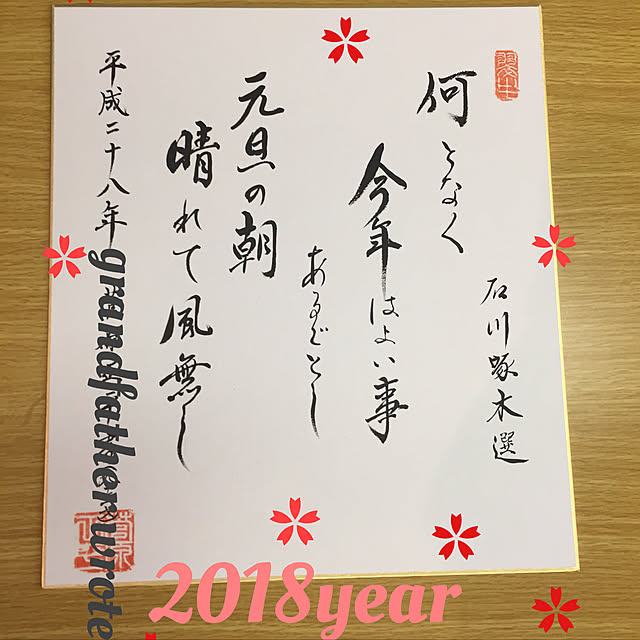 何となく
今年はよい事
あるごとし
元旦の朝
晴れて風無し
石川啄木選
平成二十八年
grandfather wrote
2018year